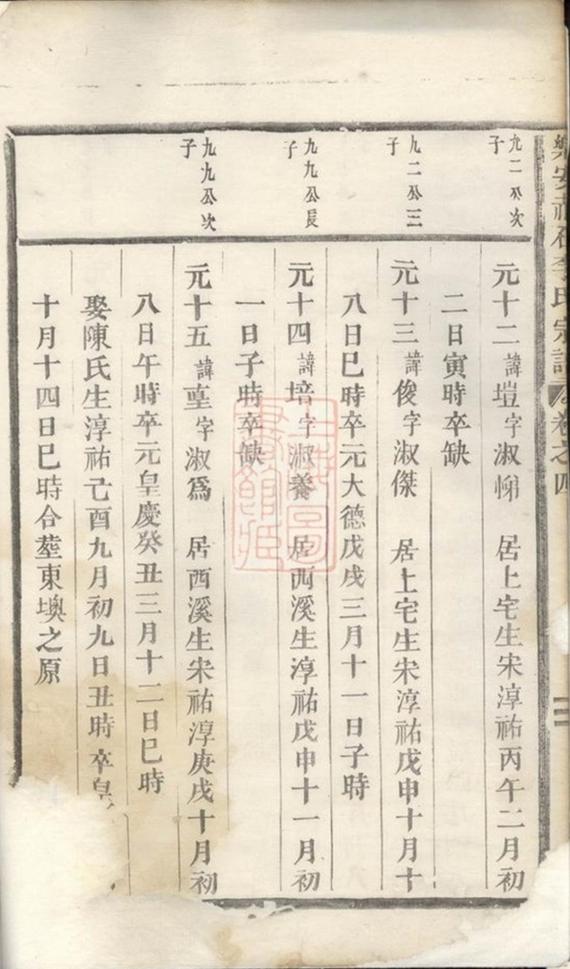 樂安
李氏宗譜
卷之四
九二公次
子
元十二諱塏字淑悌 居上宅生宋淳祐丙午二月初
二日寅時卒缺
九二公三
子
元十三諱俊字淑傑 居上宅生宋淳祐戊申十月十
八日巳時卒元大德戊戌三月十一日子時
九九公長
子
元十四諱培字淑養 居西溪生淳祐戊申十一月初
一日子時卒缺
九九公次
子
元十五諱 字淑為 居西溪生宋祐淳庚戌十月初
八日午時卒元皇慶癸丑三月十二日巳時
娶陳氏生淳祐己酉九月初九日丑時卒皇
十月十四日巳時合塟東墺之原
上海圖
書館藏